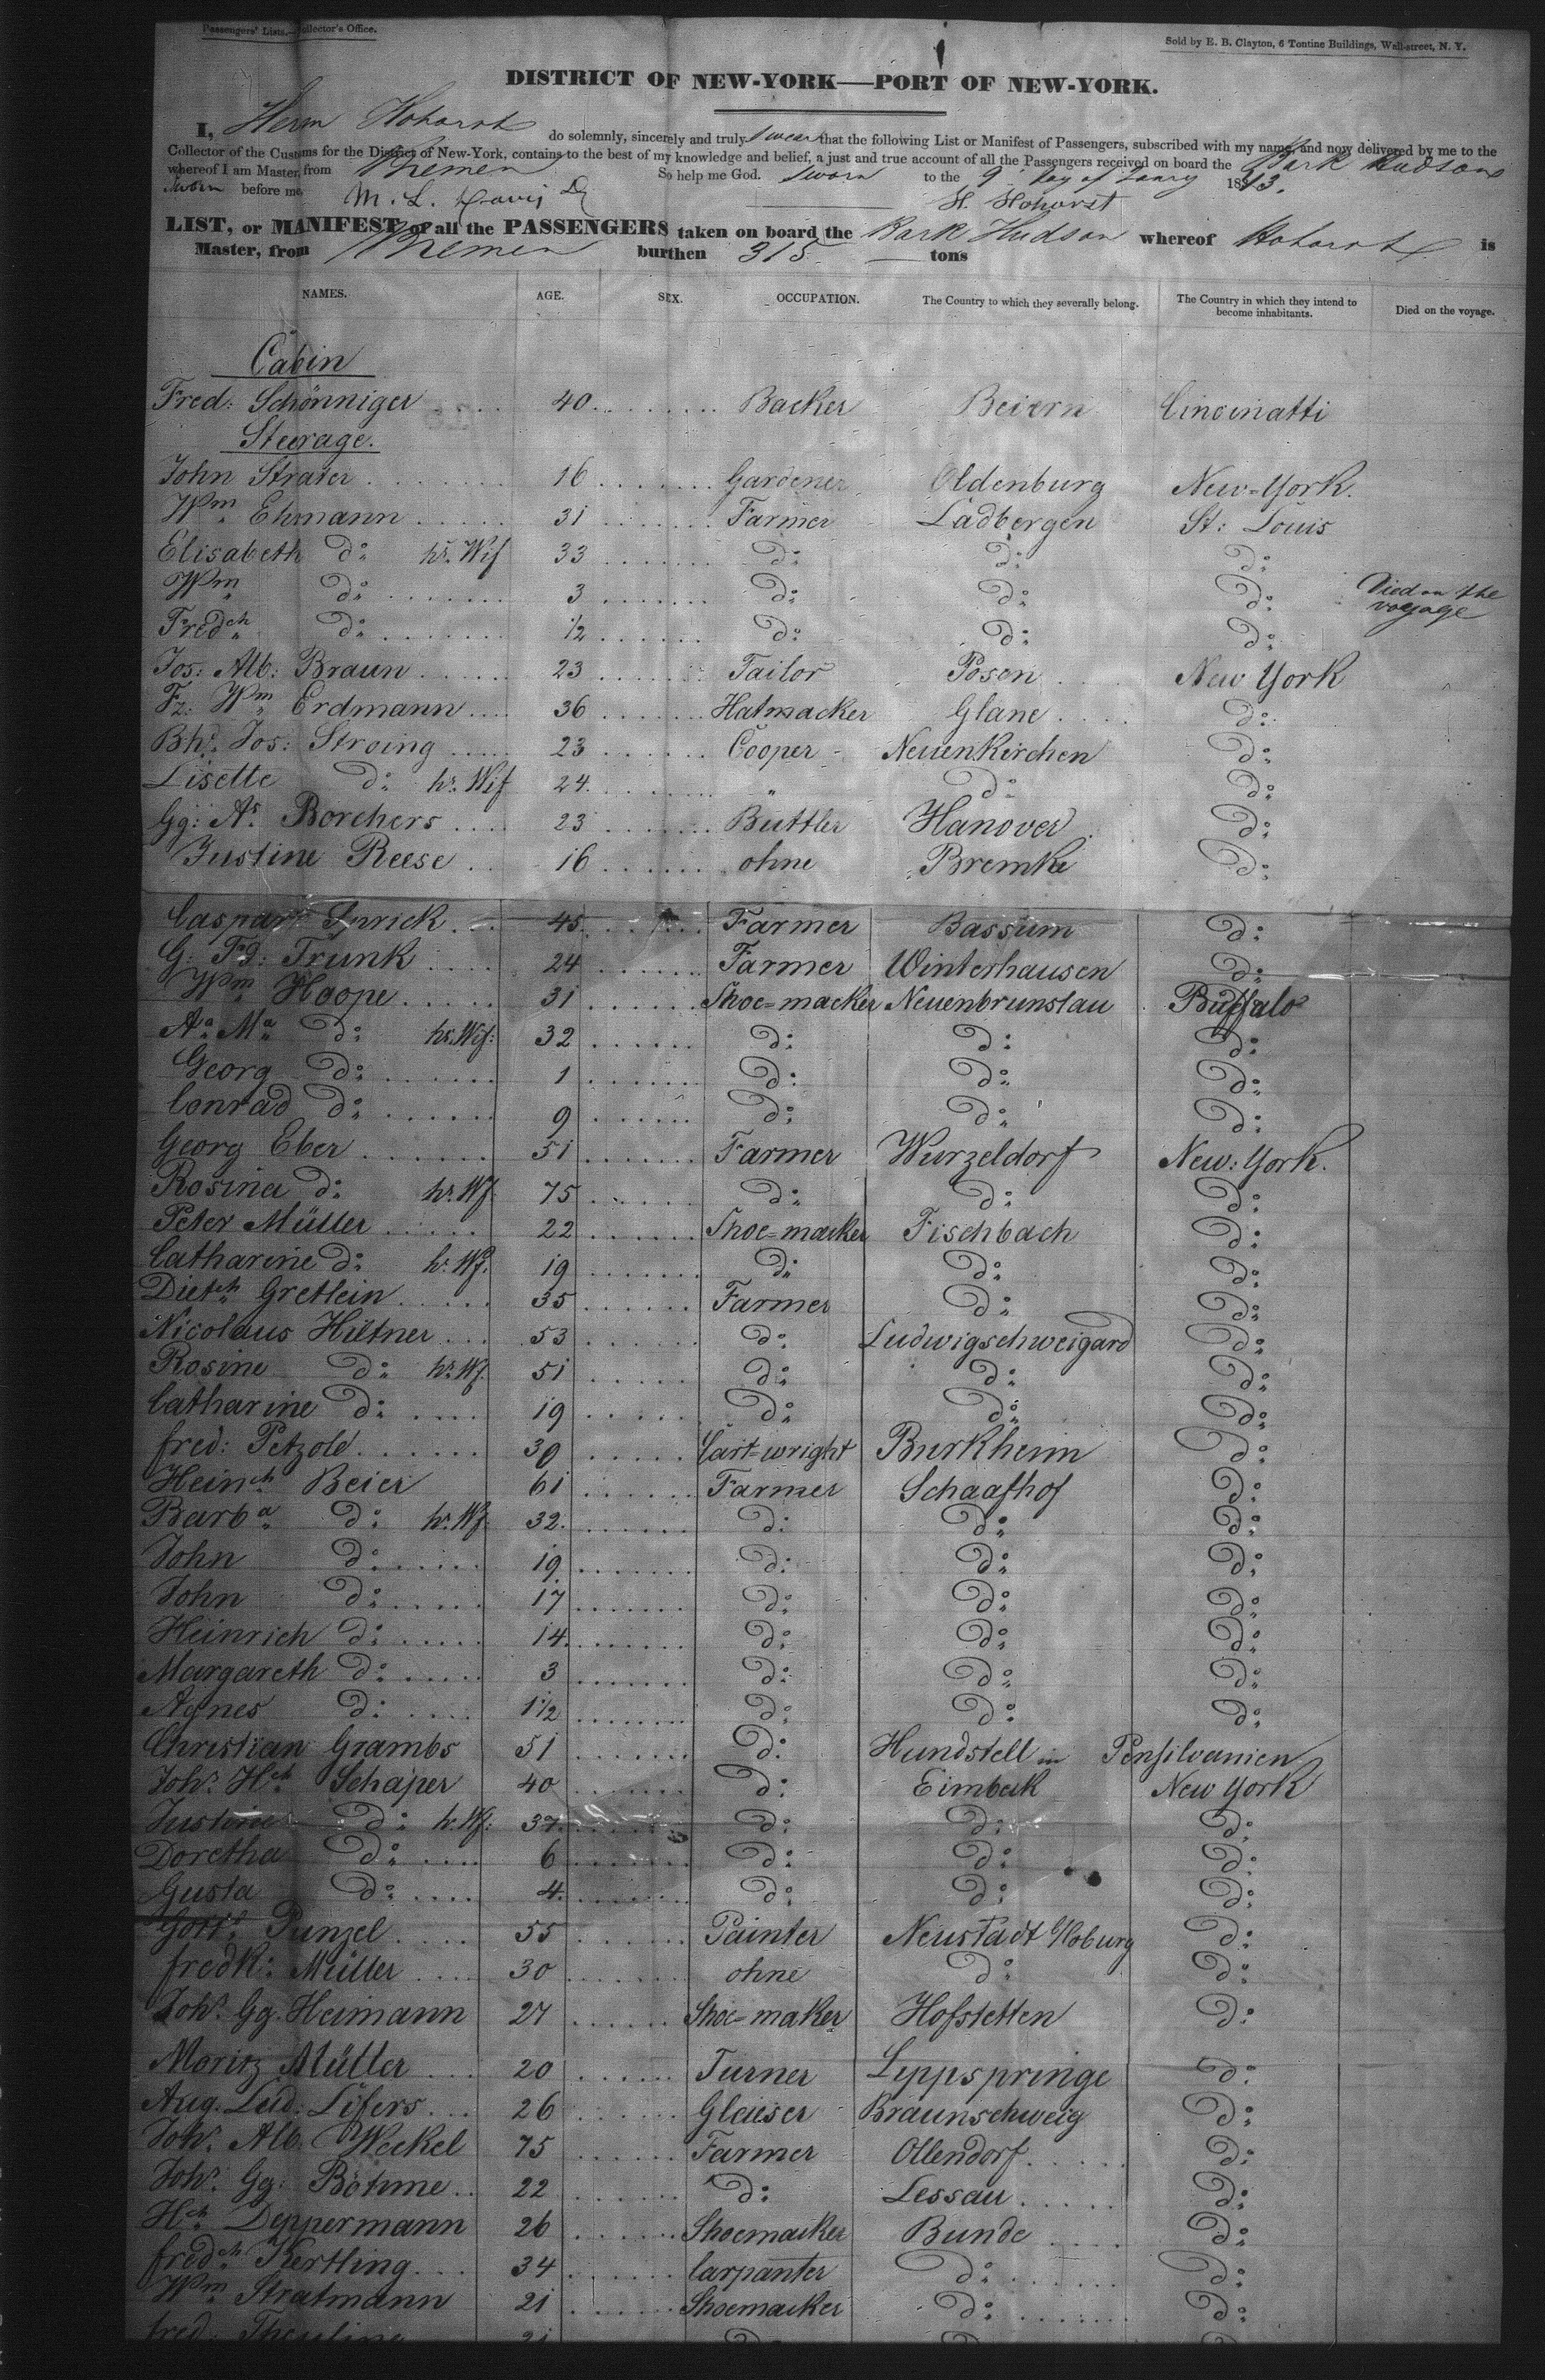 Passengers' Lists.—Collector's Office.
Sold by E. B. Clayton, 6 Tontine Buildings, Wall-street, N. Y.
DISTRICT OF NEW-YORK—PORT OF NEW-YORK.
I, Herm Hohorst do solemnly, sincerely and truly swear that the following List or Manifest of Passengers, subscribed with my name, and now delivered by me to the
Collector of the Customs for the District of New-York, contains to the best of my knowledge and belief, a just and true account of all the Passengers received on board the Bark Hudson
whereof I am Master, from Bremen So help me God. Sworn to the 9 day of 1843.
Sworn before me, M. L. Davis H. Hohorst
LIST, or MANIFEST of all the PASSENGERS taken on board the Bark Hudson whereof Hohorst is
Master, from Bremen burthen 315 tons
NAMES. AGE. SEX. OCCUPATION. The Country to which they severally belong. The Country in which they intend to become inhabitants. Died on the voyage.
Cabin
Fred: Schönniger 40 Backer Beiern Cincinatti
Steerage.
John Strater 16 Gardener Oldenburg New-York.
Wm Ehmann 31 Farmer Ladbergen St: Louis
Elisabeth do hs. Wif 33 do do do
Wm do 3 do do do Died on the voyage
Fredch do 1/2 do do do
Jos: Alb: Braun 23 Tailor Posen New York
Fz: Wm Erdmann 36 Hatmacker Glane do
Bhd. Jos: Stroing 23 Cooper Neuenkirchen do
Lisette do hs. Wif 24 " do do
Gg: As. Borchers 23 Buttler Hanover do
Justine Reese 16 ohne Bremke do
Caspar 45 Farmer Bassum do
G: Fd: Trunk 24 Farmer Winterhausen do
Wm Hoope 31 Shoe=macker Neuenbrunslau Buffalo
Aa Ma do hs. Wif: 32 do do do
Georg do 1 do do do
Conrad do 9 do do do
Georg Eber 51 Farmer Wurzeldorf New: York.
Rosina do hs. Wf. 75 do do do
Peter Müller 22 Shoe=macker Fischbach do
Catharine do hs. Wf. 19 do do do
Dietch Gretlein 35 Farmer do do
Nicolaus Hiltner 53 do Ludwigschweigard do
Rosine do hs. Wf. 51 do do do
Catharine do 19 do do do
fred: Petzold 30 Cart=wright Burkheim do
Heinch Beier 61 Farmer Schaafhof do
Barba do hs. Wf. 32 do do do
John do 19 do do do
John do 17 do do do
Heinrich do 14 do do do
Margareth do 3 do do do
Agnes do 1 1/2 do do do
Christian Grambs 51 do Hundstell in Pensilvanien
Johs. Hch Schaper 40 do Eimbeck New York
Justine do hs. Wf. 37 do do do
Doretha do 6 do do do
Gusta do 4 do do do
Gottf. Punzel 55 Painter Neustadt Coburg do
fredk: Müller 30 ohne do do
Johs. Gg. Heimann 27 Shoe=maker Hofstetten do
Moritz Müller 20 Turner Lippspringe do
Aug. Lud. Lifers 26 Glaeser Braunschweig do
Johs. Alb. Weckel 75 Farmer Ollendorf do
Johs. Gg: Böhme 22 do Lessau do
Hch Deppermann 26 Shoemacker Bunde do
fredch Kertling 34 Carpanter do do
Wm Stratmann 21 Shoemacker do do
fred. 21 do do do